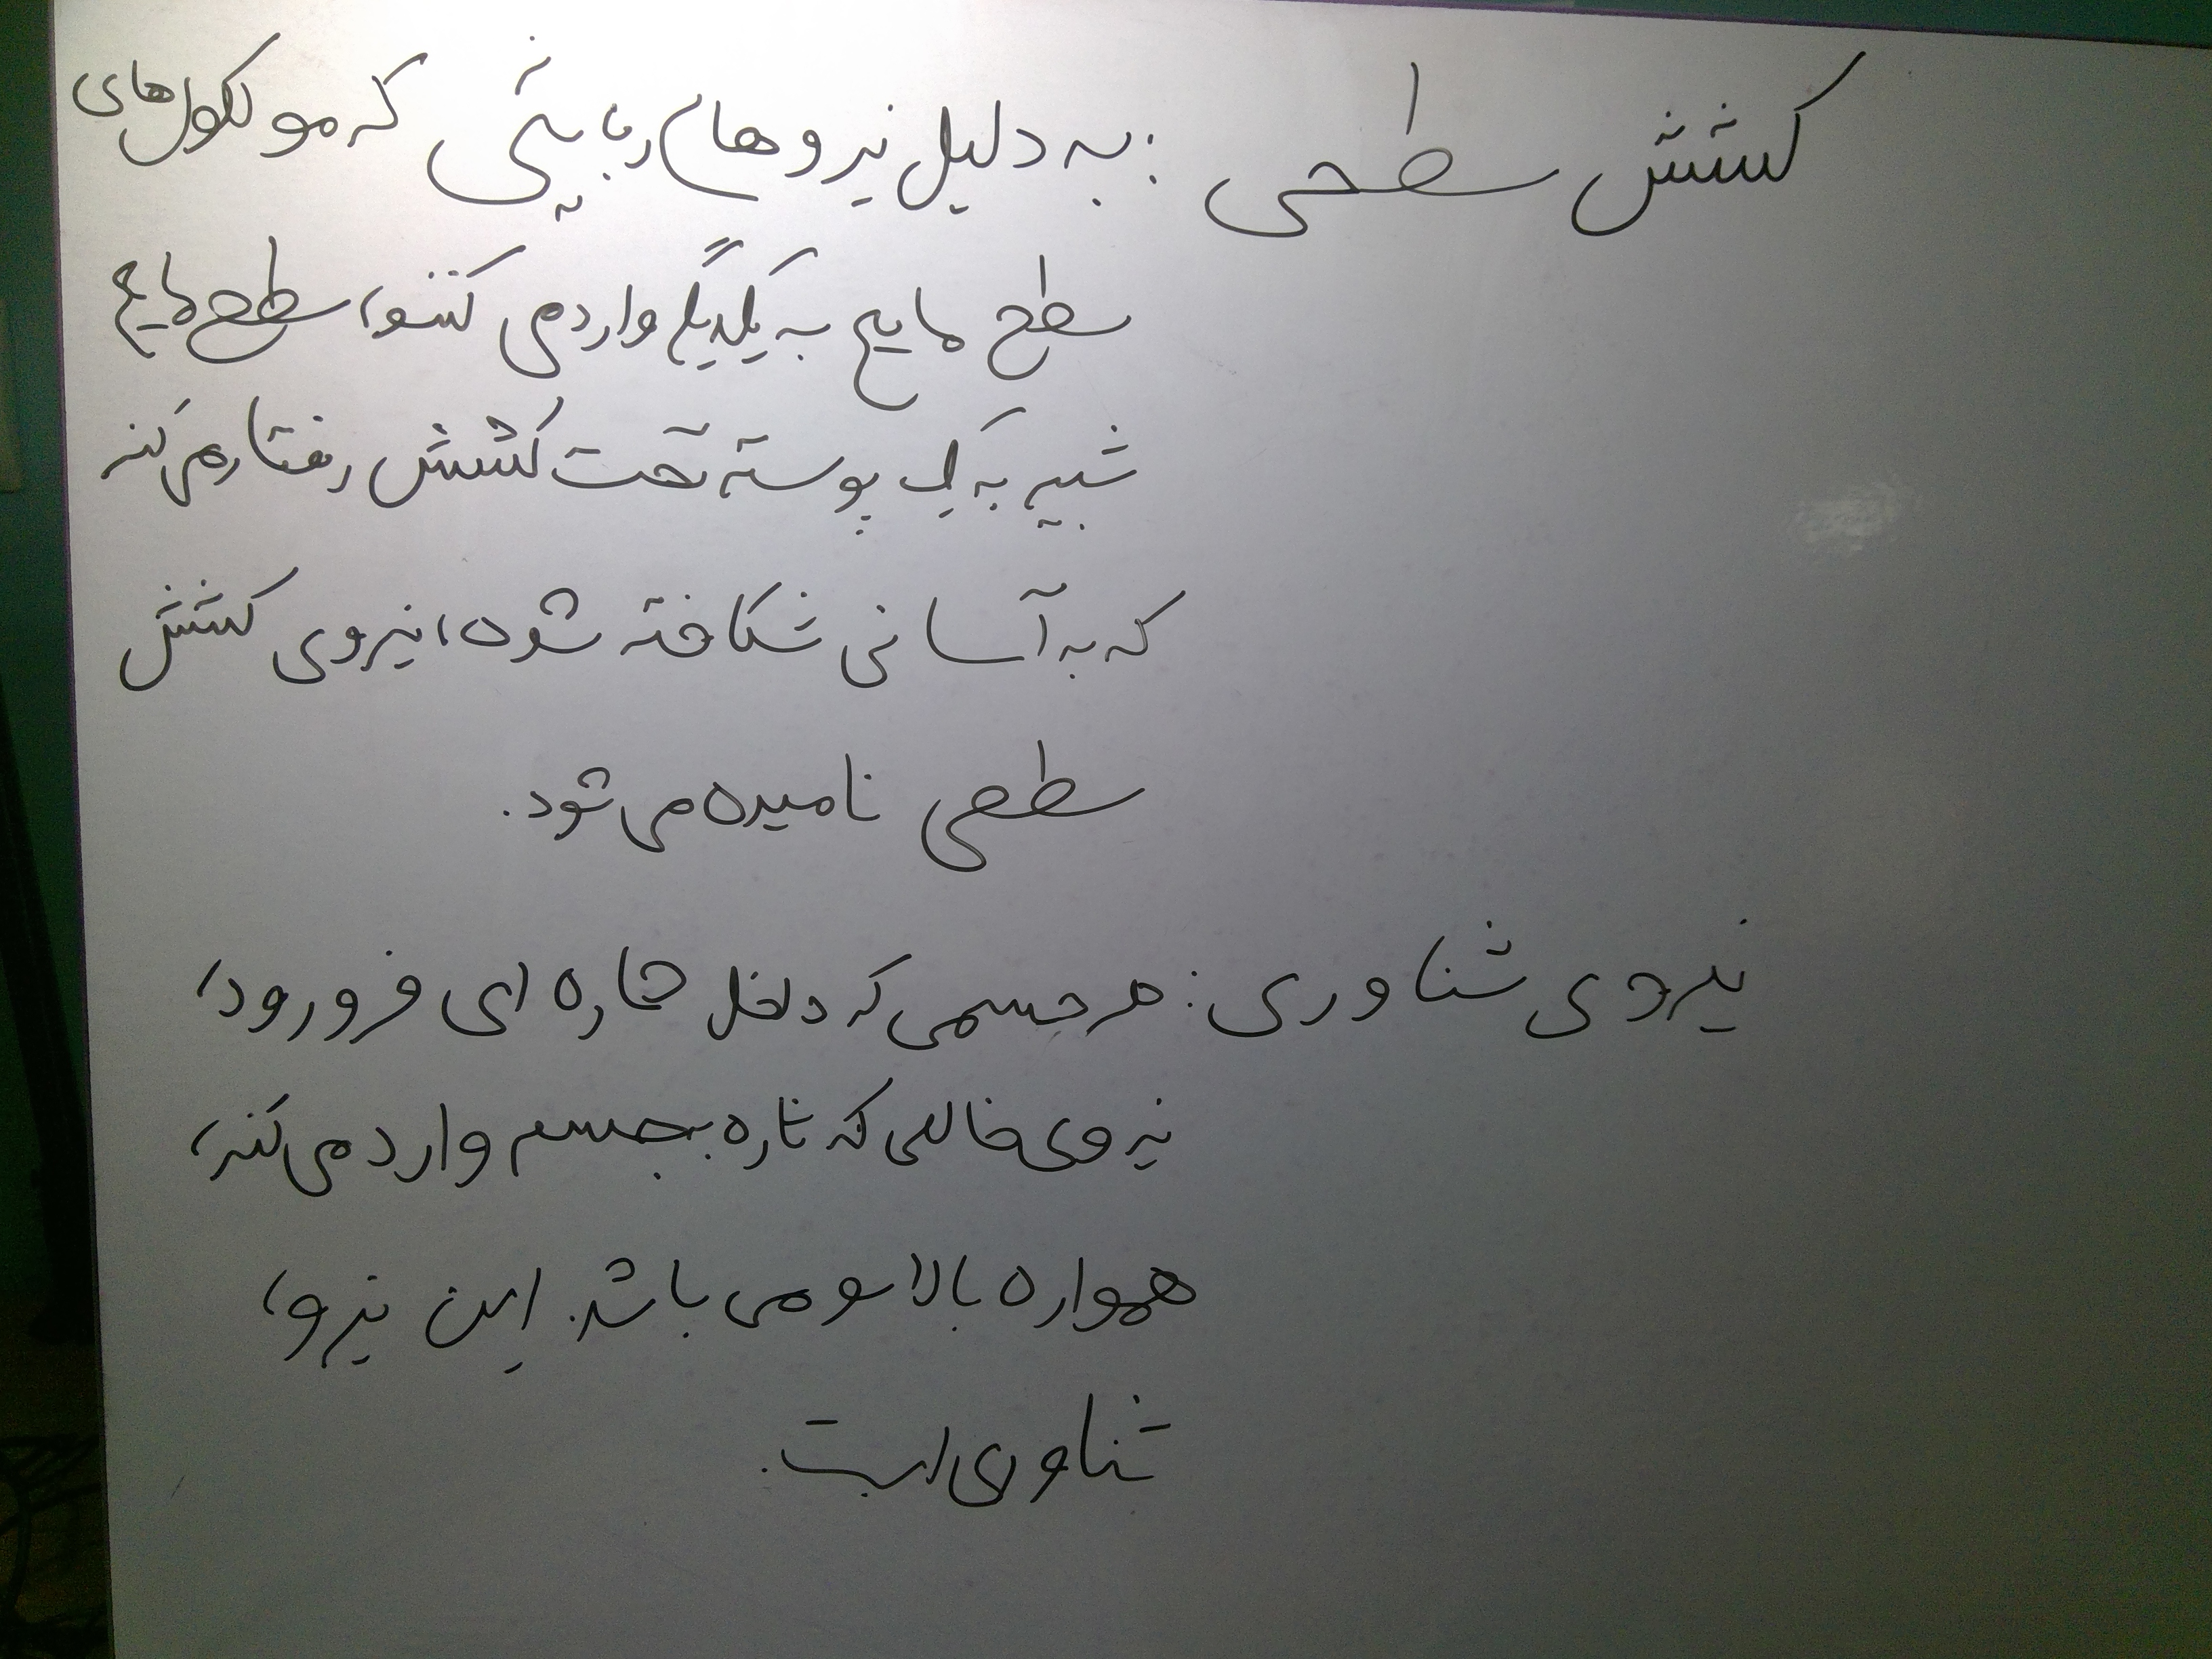 کشش سطحی : به دلیل نیروهای ربایشی که مولکول‌های
سطح مایع به یکدیگر وارد می کنند، سطح مایع
شبیه به یک پوسته تحت کشش رفتار می‌کند
که به آسانی شکافته شود، نیروی کشش
سطحی نامیده می شود.
نیروی شناوری : هر جسمی که داخل شاره ای فرو رود،
نیروی خالصی که شاره بجسم وارد می کند،
همواره بالاسو می باشد. این نیرو،
شناوری است.